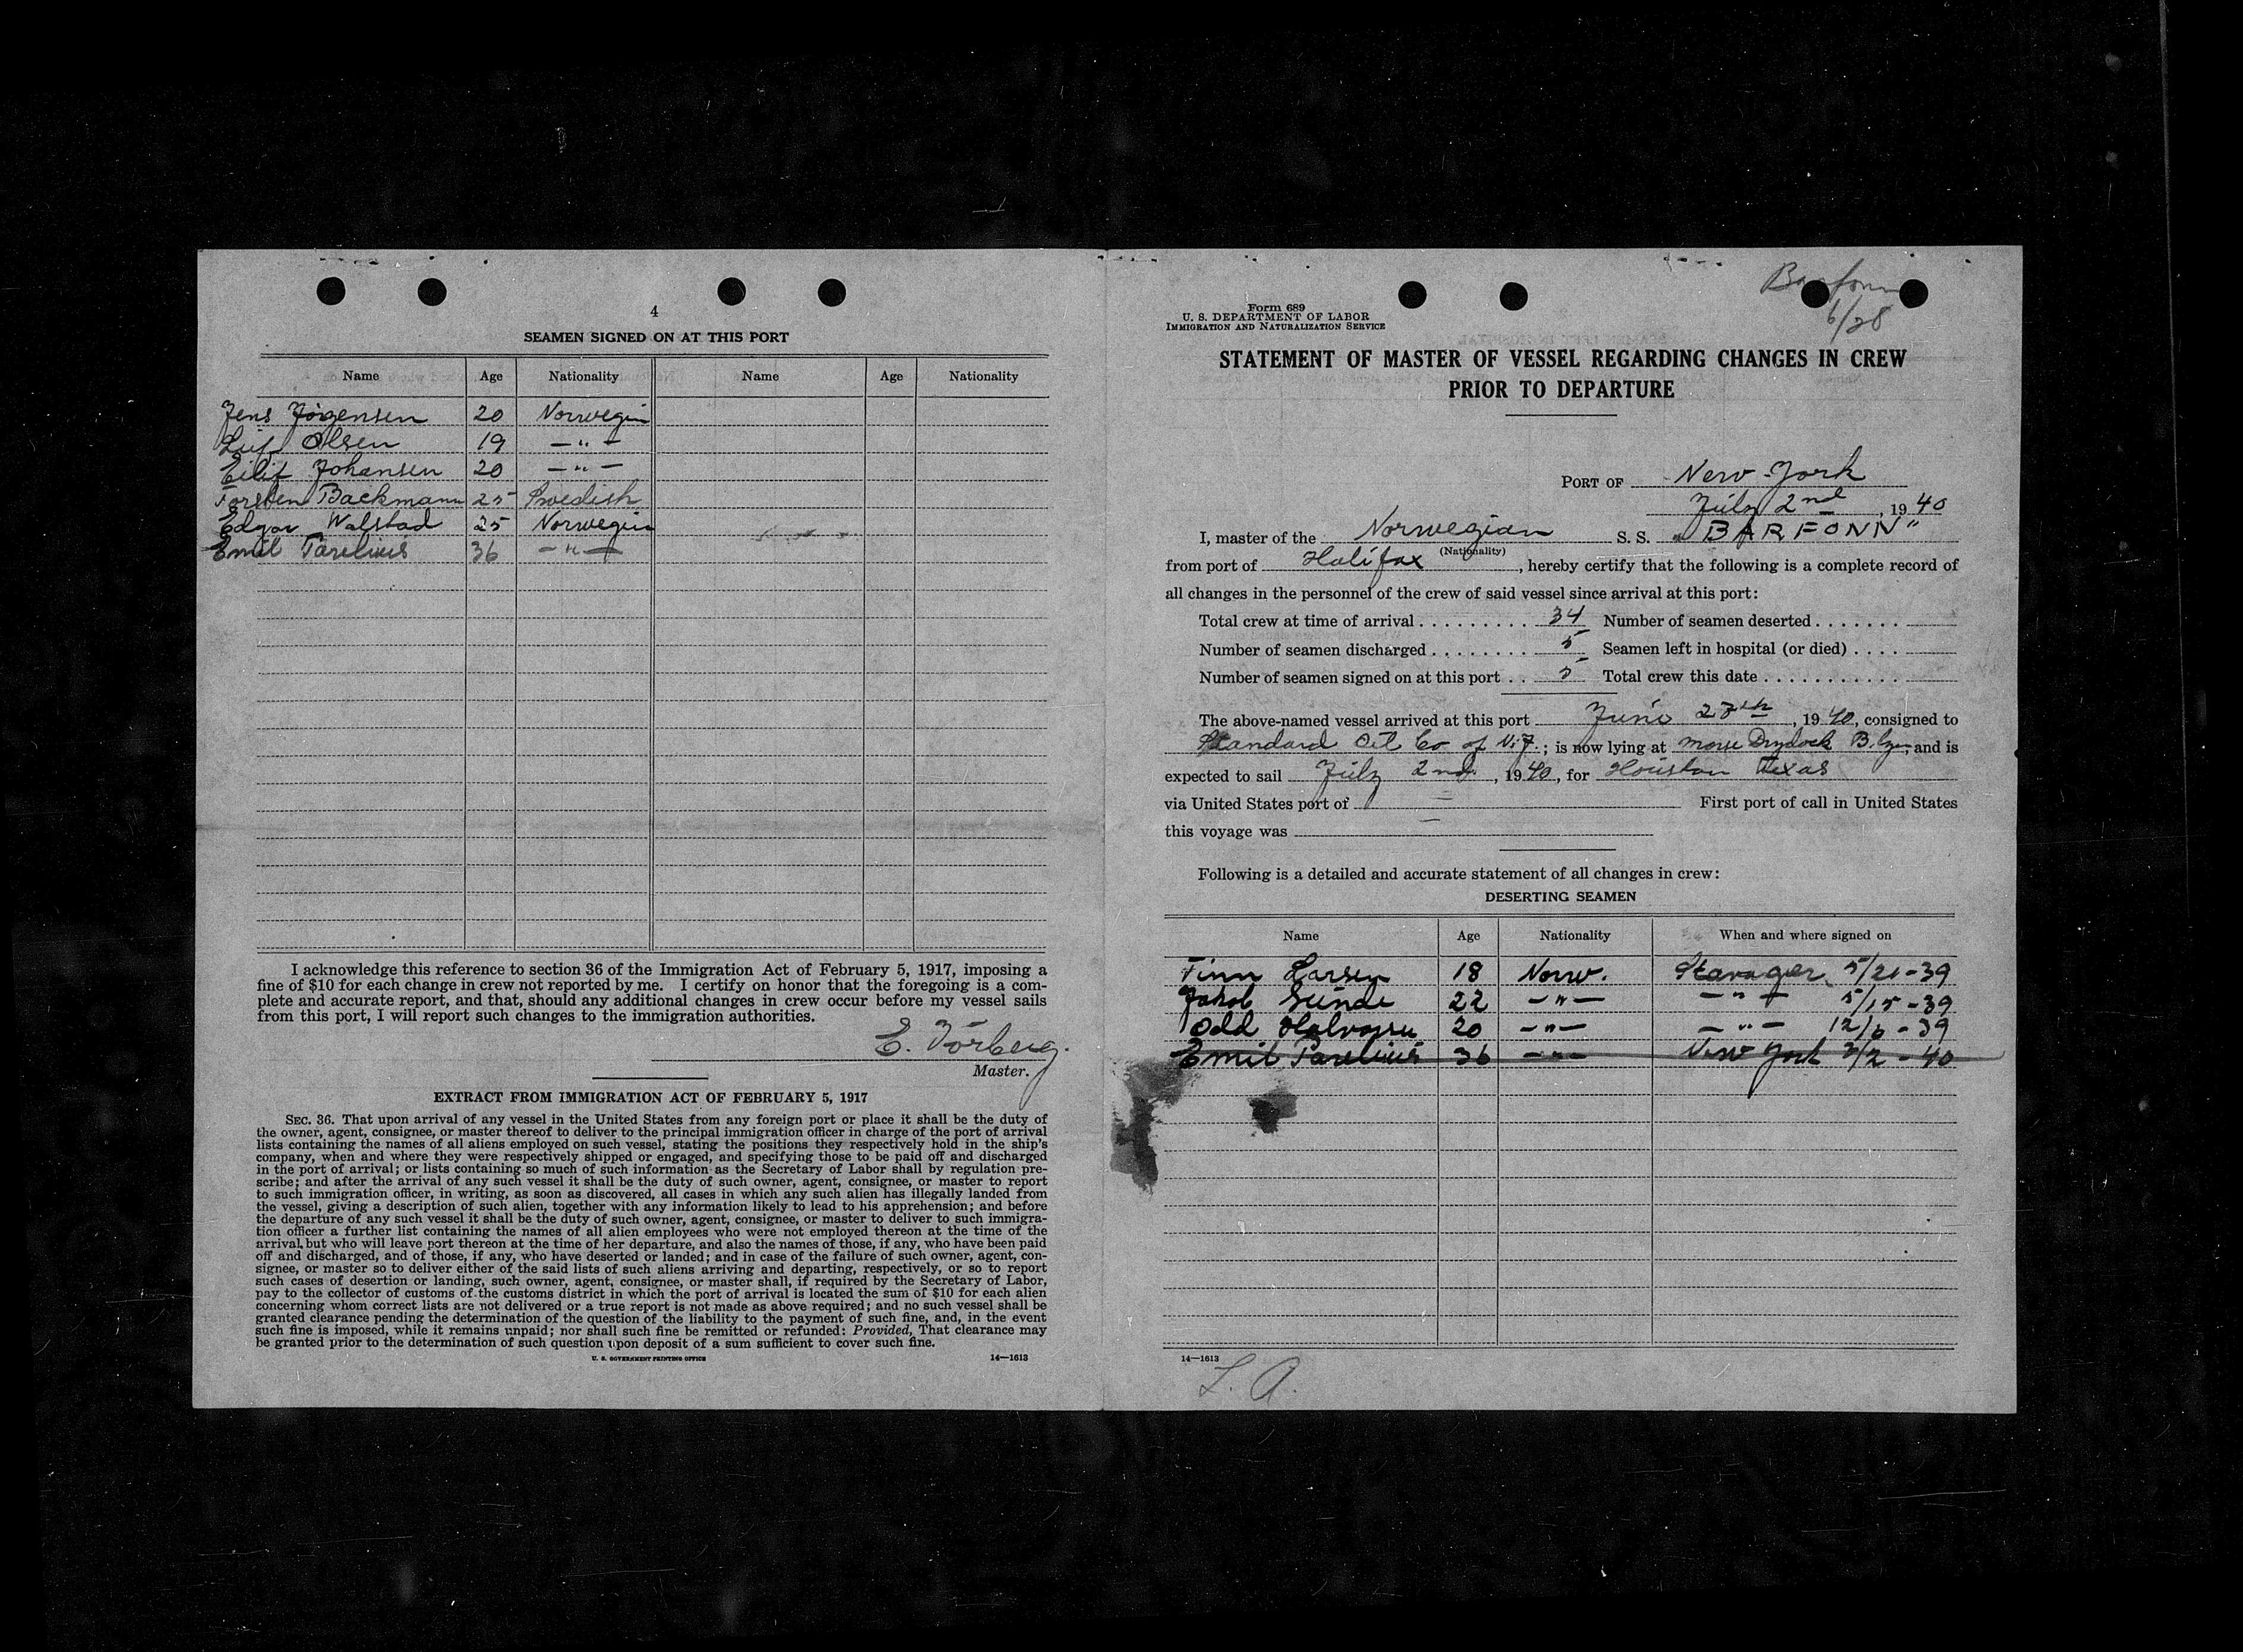 4
SEAMEN SIGNED ON AT THIS PORT
Name Age Nationality Name Age Nationality
Jens Jörgensen 20 Norwegin
Leif Olsen 19 — " —
Eilif Johansen 20 — " —
Torsten Backmann 25 Swedish
Edgar Walstad 25 Norwegin
Emil Parelius 36 — " —
I acknowledge this reference to section 36 of the Immigration Act of February 5, 1917, imposing a
fine of $10 for each change in crew not reported by me. I certify on honor that the foregoing is a com-
plete and accurate report, and that, should any additional changes in crew occur before my vessel sails
from this port, I will report such changes to the immigration authorities.
E. Torberg.
Master.
EXTRACT FROM IMMIGRATION ACT OF FEBRUARY 5, 1917
SEC. 36. That upon arrival of any vessel in the United States from any foreign port or place it shall be the duty of
the owner, agent, consignee, or master thereof to deliver to the principal immigration officer in charge of the port of arrival
lists containing the names of all aliens employed on such vessel, stating the positions they respectively hold in the ship's
company, when and where they were respectively shipped or engaged, and specifying those to be paid off and discharged
in the port of arrival; or lists containing so much of such information as the Secretary of Labor shall by regulation pre-
scribe; and after the arrival of any such vessel it shall be the duty of such owner, agent, consignee, or master to report
to such immigration officer, in writing, as soon as discovered, all cases in which any such alien has illegally landed from
the vessel, giving a description of such alien, together with any information likely to lead to his apprehension; and before
the departure of any such vessel it shall be the duty of such owner, agent, consignee, or master to deliver to such immigra-
tion officer a further list containing the names of all alien employees who were not employed thereon at the time of the
arrival, but who will leave port thereon at the time of her departure, and also the names of those, if any, who have been paid
off and discharged, and of those, if any, who have deserted or landed; and in case of the failure of such owner, agent, con-
signee, or master so to deliver either of the said lists of such aliens arriving and departing, respectively, or so to report
such cases of desertion or landing, such owner, agent, consignee, or master shall, if required by the Secretary of Labor,
pay to the collector of customs of the customs district in which the port of arrival is located the sum of $10 for each alien
concerning whom correct lists are not delivered or a true report is not made as above required; and no such vessel shall be
granted clearance pending the determination of the question of the liability to the payment of such fine, and, in the event
such fine is imposed, while it remains unpaid; nor shall such fine be remitted or refunded: Provided, That clearance may
be granted prior to the determination of such question upon deposit of a sum sufficient to cover such fine.
U. S. GOVERNMENT PRINTING OFFICE 14—1613
Barfonn
6/28
Form 689
U. S. DEPARTMENT OF LABOR
IMMIGRATION AND NATURALIZATION SERVICE
STATEMENT OF MASTER OF VESSEL REGARDING CHANGES IN CREW
PRIOR TO DEPARTURE
PORT OF New-York
July 2nd, 1940
I, master of the Norwegian S. S. "BARFONN"
(Nationality)
from port of Halifax, hereby certify that the following is a complete record of
all changes in the personnel of the crew of said vessel since arrival at this port:
Total crew at time of arrival . . . . . . . . . 34 Number of seamen deserted . . . . . . .
Number of seamen discharged . . . . . . . . 5 Seamen left in hospital (or died) . . . .
Number of seamen signed on at this port . . 5 Total crew this date . . . . . . . . . . . .
The above-named vessel arrived at this port June 28th, 1940, consigned to
Standard Oil Co of N.J.; is now lying at Morse Drydock and is
expected to sail July 2nd, 1940, for Houston Texas
via United States port of — First port of call in United States
this voyage was —
Following is a detailed and accurate statement of all changes in crew:
DESERTING SEAMEN
Name Age Nationality When and where signed on
Finn Larsen 18 Norw. Stavager 5/21-39
Jakob Sunde 22 — " — — " — 5/15-39
Odd 20 — " — — " — 12/6-39
Emil Parelius 36 — " — New York 3/2-40
14—1613
L. A.